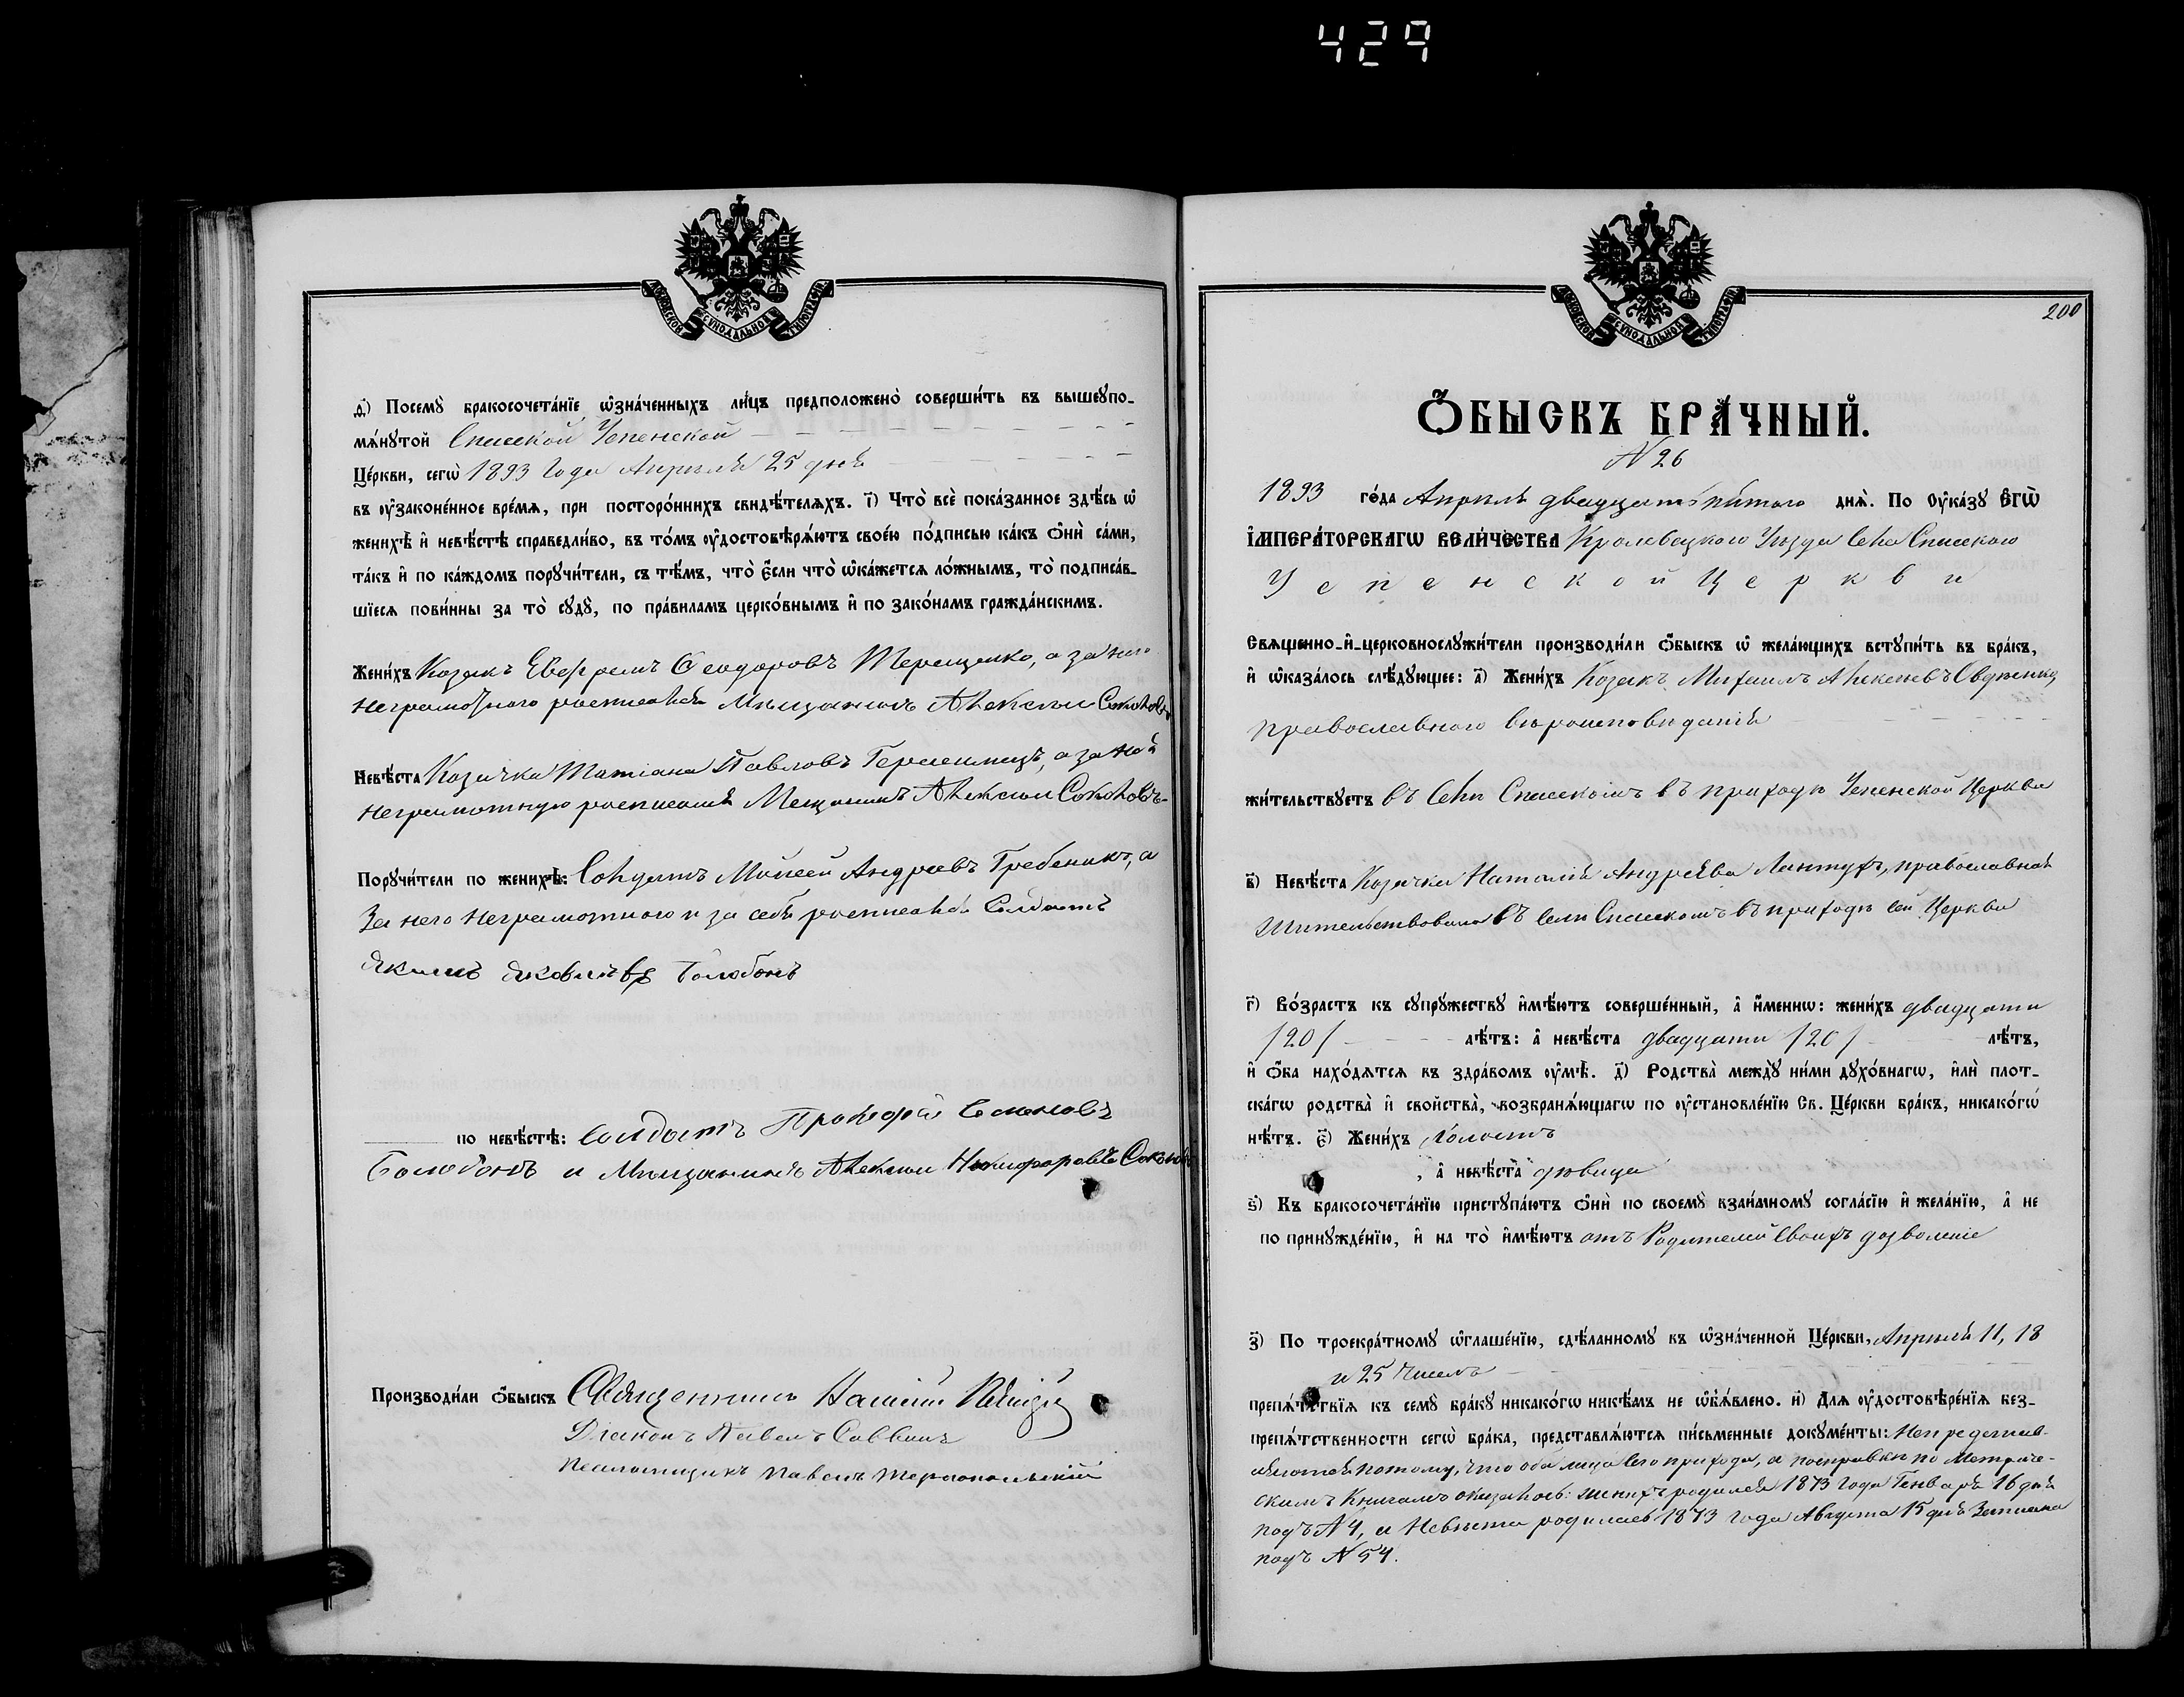 429
МОСКОВСКОЙ СѴНОДАЛЬНОЙ ТИПОГРАФІИ
д҃і) Посемꙋ̀ бракосочета́нїе ѡ҆зна́ченныхъ ли́цъ предположено̀ соверши́ть въ вышеꙋпо-
мѧ́нꙋтой Спасской Успенской
Це́ркви, сегѡ̀ 1893 года Апрѣля 25 дня
въ ᲂу҆законе́нное вре́мѧ, при посторо́ннихъ свидѣ́телѧхъ. і҃) Что̀ всѐ пока́занное здѣ́сь ѡ҆
женихѣ̀ и҆ невѣ́стѣ справедли́во, въ то́мъ ᲂу҆достовѣрѧ́ютъ свое́ю по́дписью ка́къ ѻ҆нѝ са́ми,
та́къ и҆ по ка́ждомъ порꙋчи́тели, съ тѣ́мъ, что̀ є҆́сли что̀ ѡ҆ка́жетсѧ ло́жнымъ, то̀ подписа́в-
шїесѧ пови́нны за то̀ сꙋдꙋ̀, по пра́виламъ церко́внымъ и҆ по зако́намъ гражда́нскимъ.
Жени́хъ Козакъ Ефремъ Ѳеодоровъ Терещенко, а за него
неграмотного росписался Мѣщанинъ Алексѣй Соколовъ
Невѣ́ста Козачка Татіана Павлова Герасимецъ, а за ней
неграмотную росписался Мещанинъ Алексѣй Соколовъ
Порꙋчи́тели по женихѣ̀: Солдатъ Мойсей Андреевъ Гребеникъ, а
За него неграмотного и за себя росписался Солдатъ
Якимъ Яковлевъ Голобонъ
по невѣ́стѣ: Солдатъ Прокофій Семеновъ
Голобонъ и Мѣщанинъ Алексѣй Никифоровъ Соколовъ
Производи́ли ѻ҆́быскъ Священникъ
Діаконъ Павелъ Саввичъ
Псаломщикъ Павелъ
МОСКОВСКОЙ СѴНОДАЛЬНОЙ ТИПОГРАФІИ
200
Ѻ҆́БЫСКЪ БРА́ЧНЫЙ.
N 26
1893 го́да Апрѣля двадцать пятого днѧ̀. По Оу҆ка́зꙋ Є҆гѡ̀
І҆мпера́торскагѡ Вели́чества Кролевецкого Уѣзда Села Спасского
Успенской Церкви
Свѧщенно-и҆-церковнослꙋжи́тели производи́ли ѻ҆́быскъ ѡ҆ жела́ющихъ встꙋпи́ть въ бра́къ,
и҆ ѡ҆каза́лось слѣ́дꙋющее: а҃) Жени́хъ Козакъ Михаилъ Алексѣевъ Овдѣенко,
православного вѣроисповѣданія
жи́тельствꙋетъ въ Селѣ Спасскомъ въ приходѣ Успенской Церкви
в҃) Невѣ́ста Козачка Наталія Андреева Лантухъ, православная
Жительствовала въ селѣ Спасскомъ въ приходѣ сей Церкви
г҃) Во́зрастъ къ сꙋпрꙋ́жествꙋ и҆мѣ́ютъ соверше́нный, а҆̀ и҆́меннѡ: жени́хъ двадцати
/20/ лѣ́тъ: а҆̀ невѣ́ста двадцати /20/ лѣ́тъ,
и҆ ѻ҆́ба нахо́дѧтсѧ въ здра́вомъ ᲂу҆мѣ̀. д҃) Родства̀ междꙋ̀ ни́ми дꙋхо́внагѡ, и҆лѝ плот-
ска́гѡ родства̀ и҆ сво́йства̀, возбранѧ́ющагѡ по ᲂу҆становле́нїю Св. Це́ркви бра́къ, никако́гѡ
нѣ́тъ. є҃) Жени́хъ Холостъ
, а҆̀ невѣ́ста дѣвица
ѕ҃) Къ бракосочета́нїю пристꙋпа́ютъ ѻ҆нѝ по своемꙋ̀ взаи́мномꙋ согла́сїю и҆ жела́нїю, а҆̀ не
по принꙋжде́нїю, и҆ на то̀ и҆мѣ́ютъ отъ Родителей Своихъ дозволеніе
з҃) По троекра́тномꙋ ѡ҆глаше́нїю, сдѣ́ланномꙋ въ ѡ҆зна́ченной Це́ркви, Апрѣля 11, 18
и 25 Числъ
препѧ́тствїѧ къ семꙋ̀ бра́кꙋ никако́гѡ никѣ́мъ не ѡ҆б̾ѧ́влено. и҃) Длѧ ᲂу҆достовѣре́нїѧ без-
препѧ́тственности сегѡ̀ бра́ка, представлѧ́ютсѧ пи́сьменные докꙋме́нты: Непредстав-
ляются потому, что оба лица сего прихода, а по справкѣ по Метриче-
скимъ Книгамъ оказалось: женихъ родился 1873 года Генваря 16 дня
подъ N 4, а Невѣста родилась 1873 года Августа 15 дня Записана
подъ N 54.